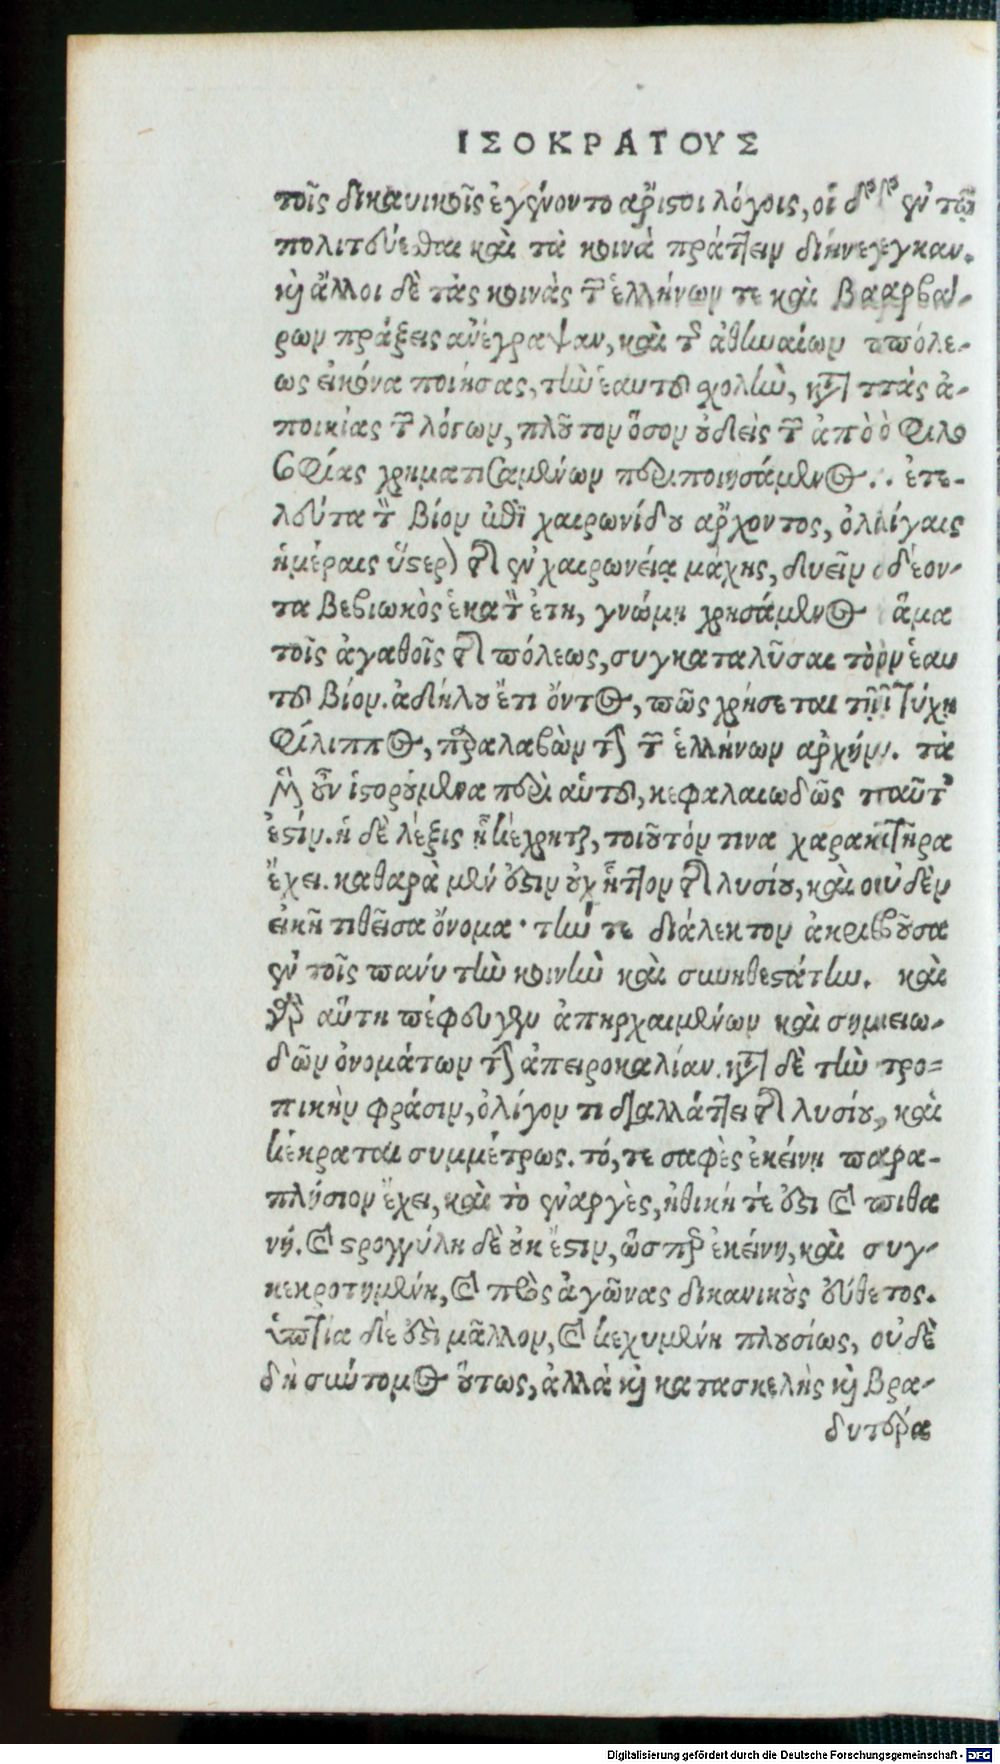 ΙΣΟΚΡΑΤΟΥΣ
τοῖς δικανικοῖς ἐγένοντο ἄριστοι λόγοις, οἱ δ' ἐν τῷ
πολιτεύεσθαι καὶ τὰ κοινὰ πράττειν διήνεγκαν.
καὶ ἄλλοι δὲ τὰς κοινὰς τῶν ἑλλήνων τε καὶ βαρβά-
ρων πράξεις ἀνέγραψαν, καὶ τῆς ἀθηναίων πόλε-
ως εἰκόνα ποιήσας, τὴν ἑαυτοῦ σχολὴν, κατὰ τὰς ἀ-
ποικίας τῶν λόγων, πλοῦτον ὅσον οὐδεὶς τῶν ἀπὸ φιλο
σοφίας χρηματισαμένων περιποιησάμενος. ἐτε-
λεύτα τὸν βίον ἐπὶ χαιρωνίδου ἄρχοντος, ὀλίγαις
ἡμέραις ὕστερον τῆς ἐν χαιρωνείᾳ μάχης, δυεῖν δέον-
τα βεβιωκὸς ἑκατὸν ἔτη, γνώμῃ χρησάμενος ἅμα
τοῖς ἀγαθοῖς τῆς πόλεως, συγκαταλῦσαι τὸν ἑαυ
τοῦ βίον. ἀδήλου ἔτι ὄντος, πῶς χρήσεται τῇ τύχῃ
φίλιππος, παραλαβὼν τὴν τῶν ἑλλήνων ἀρχήν. τὰ
μὲν οὖν ἱστορούμενα περὶ αὐτοῦ, κεφαλαιωδῶς ταῦτ'
ἐστίν. ἡ δὲ λέξις ᾗ κέχρηται, τοιοῦτόν τινα χαρακτῆρα
ἔχει. καθαρὰ μέν ἐστιν οὐχ ἧττον τῆς λυσίου, καὶ οὐδὲν
εἰκῇ τιθεῖσα ὄνομα· τήν τε διάλεκτον ἀκριβοῦσα
ἐν τοῖς πάνυ τὴν κοινὴν καὶ συνηθεστάτην. καὶ
γὰρ αὕτη πέφευγεν ἀπηρχαιμένων καὶ σημειω-
δῶν ὀνομάτων τὴν ἀπειροκαλίαν. κατὰ δὲ τὴν τρο-
πικὴν φράσιν, ὀλίγον τι διαλλάττει τῆς λυσίου, καὶ
κέκραται συμμέτρως. τό, τε σαφὲς ἐκείνῃ παρα-
πλήσιον ἔχει, καὶ τὸ ἐναργὲς, ἠθική τέ ἐστι καὶ πιθα
νή. καὶ στρογγύλη δὲ οὐκ ἔστιν, ὥσπερ ἐκείνη, καὶ συγ-
κεκροτημένη, καὶ πρὸς ἀγῶνας δικανικοὺς εὔθετος.
ὑπτία δέ ἐστὶ μᾶλλον, καὶ κεχυμένη πλουσίως, οὐδὲ
δὴ σύντομος οὕτως, ἀλλὰ καὶ κατασκελὴς καὶ βρα-
δυτέρα
Digitalisierung gefördert durch die Deutsche Forschungsgemeinschaft - DFG